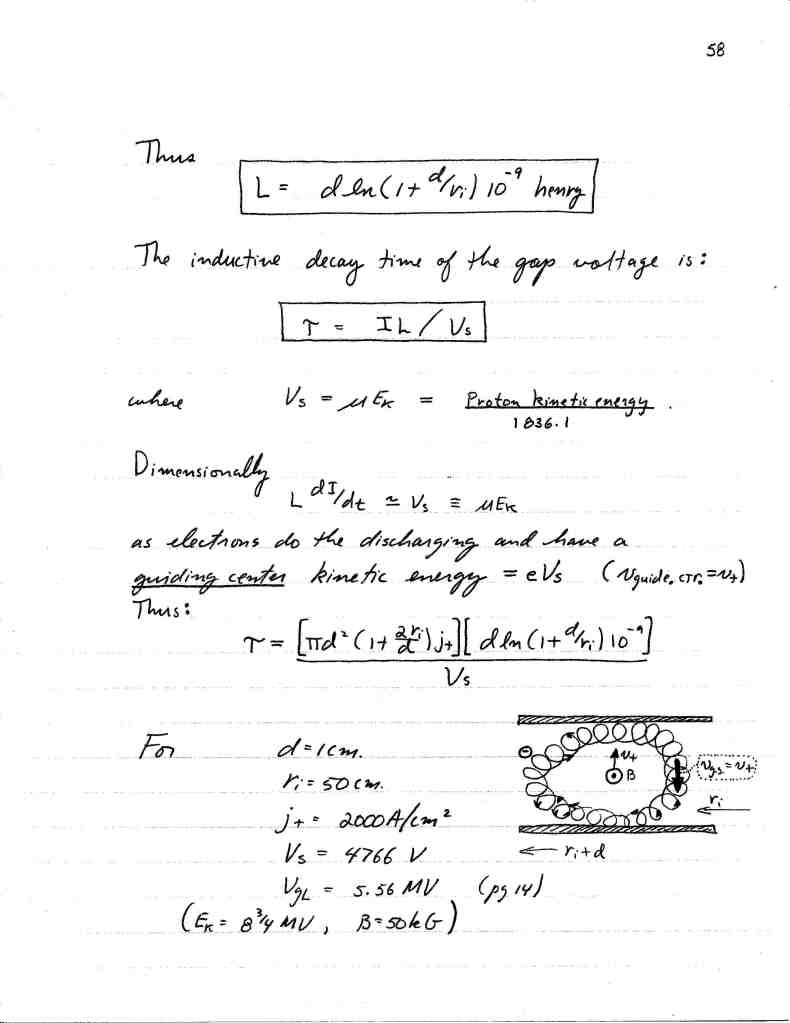 58
Thus
L = d ln(1 + d/ri) 10⁻⁹ henry
The inductive decay time of the gap voltage is:
τ = IL / Vs
where Vs = μEK = Proton kinetic energy / 1836.1 .
Dimensionally
L dI/dt ≃ Vs ≡ μEK
as electrons do the discharging and have a
guiding center kinetic energy = eVs (vguide. CTR. = v+)
Thus:
τ = [πd² (1 + 2ri/d) j+][d ln(1 + d/ri) 10⁻⁹] / Vs
For d = 1 cm.
ri = 50 cm.
j+ = 2000 A/cm²
Vs = 4766 V
VgL = 5.56 MV (pg 14)
(EK = 8 3/4 MV, B = 50 kG)
⊖ v+
⊙ B
vg2 = v+
ri
← ri + d